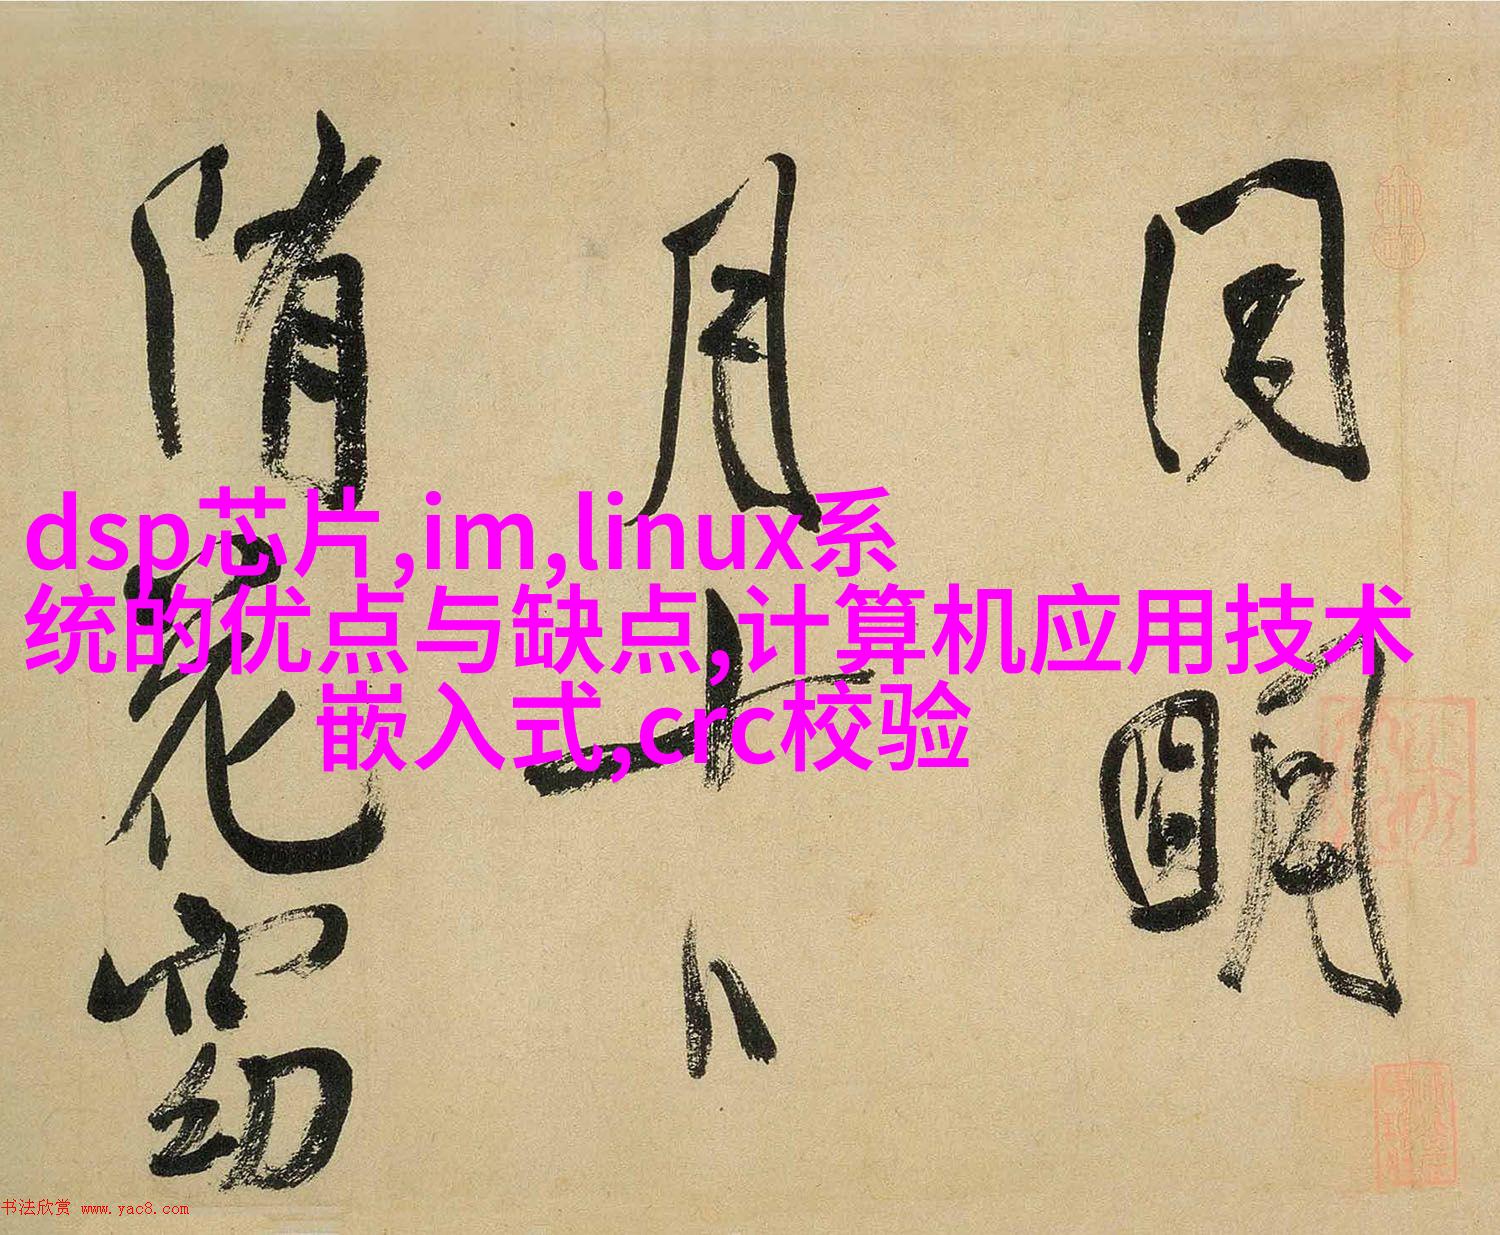 同明
月十日
隋花窈
dsp芯片,im,linux系
统的优点与缺点,计算机应用技术
嵌入式,crc校验
书法欣赏 www.yac8.com